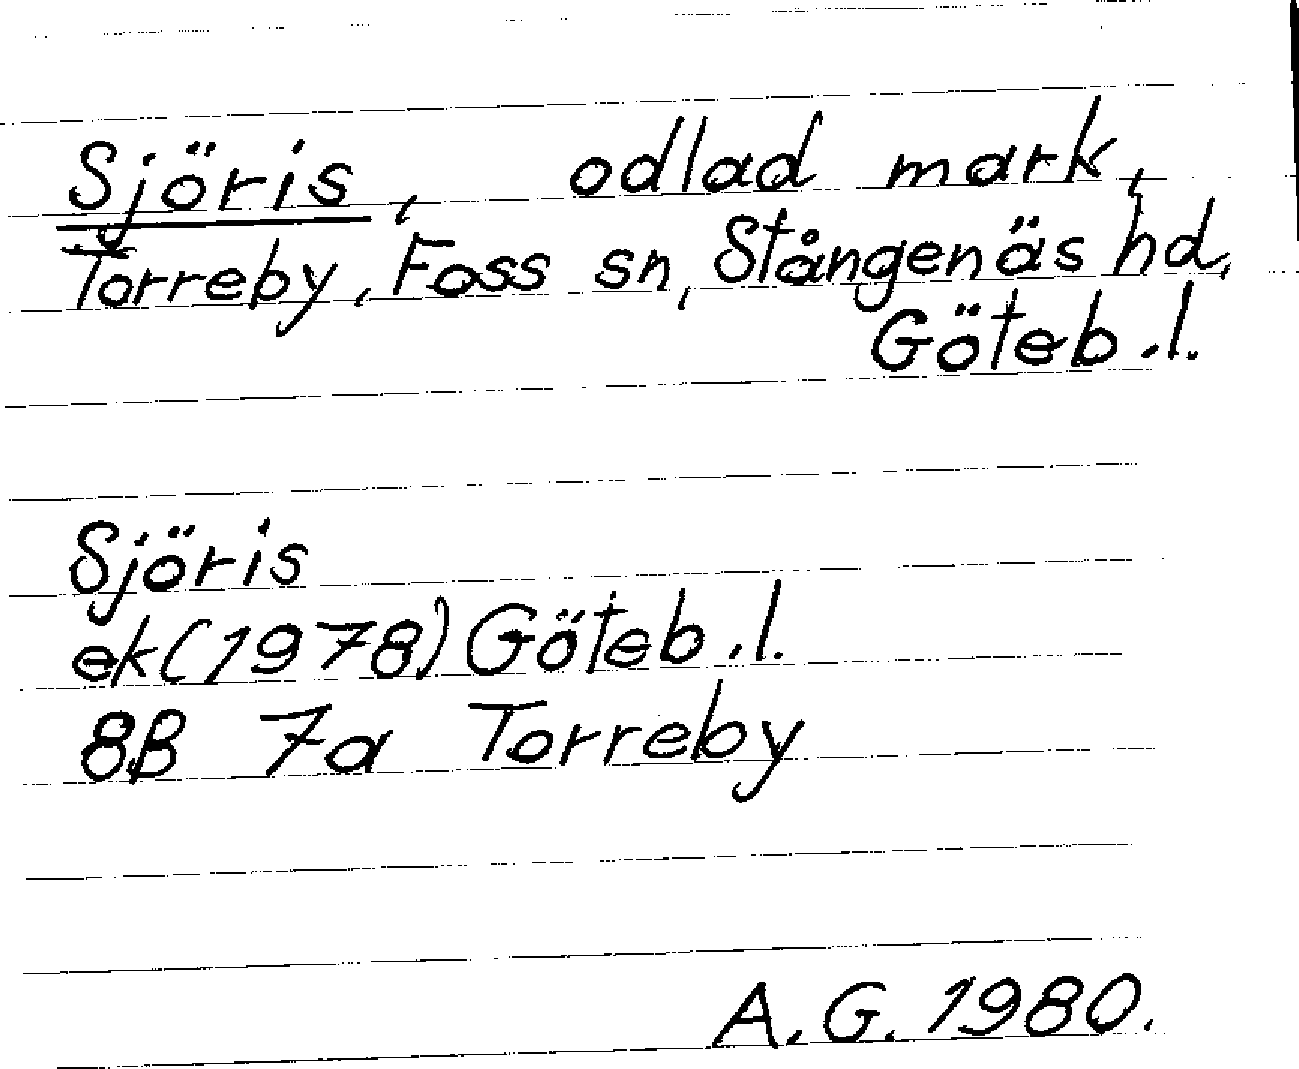 Sjöris, odlad mark,
Torreby, Foss sn, Stångenäs hd,
Göteb.l.
Sjöris
ek(1978) Göteb.l.
8B 7a Torreby
A.G. 1980.